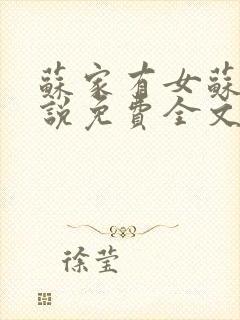 蘇家有女蘇
說免費全文
徐莹